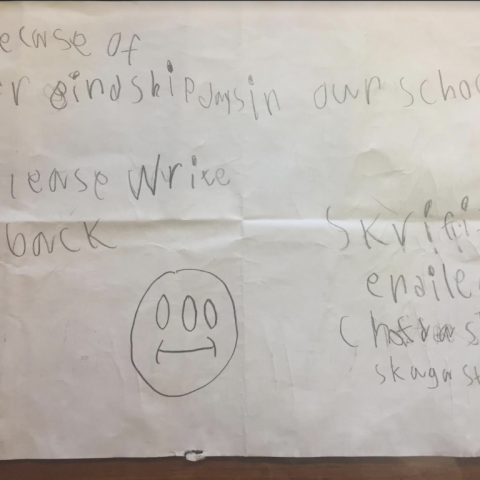 ecase of
r gindship days in our schoo
lease Write
back
Skrifi
enaile
skagast